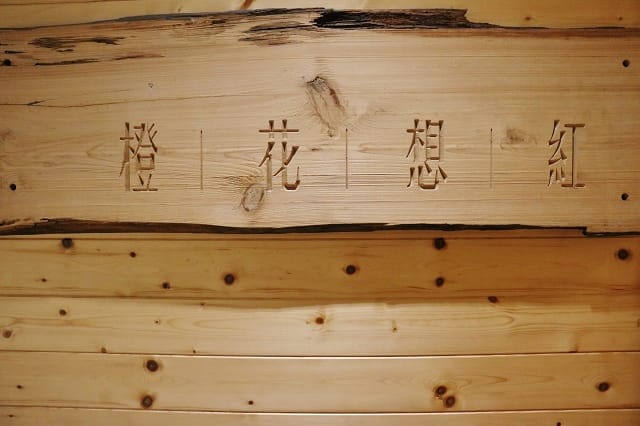 橙|花|想|紅